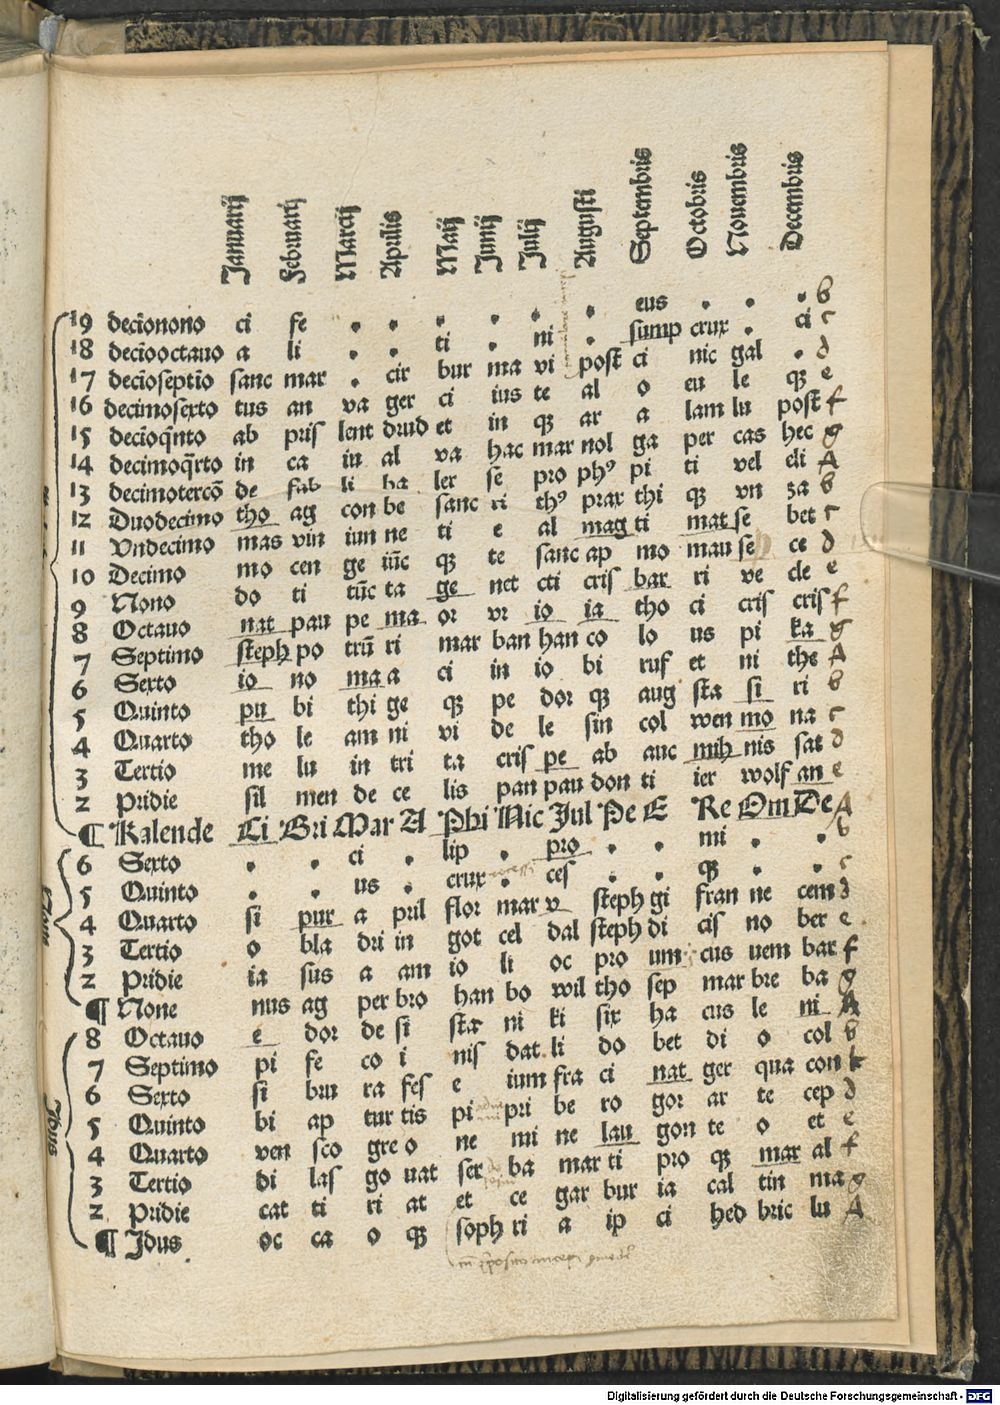 Januarij Februarij Marcij Aprilis Maij Junij Julij Augusti Septembris Octobris Nouembris Decembris
19 decīonono ci fe . . . . . . eus . . . b
18 decīooctauo a li . . ti . ni . sump crux . ci c
17 decīoseptīo sanc mar . cir bur ma vi post̄ ci nic gal . d
16 decimosexto tus an va ger ci ius te al o eu le qꝫ e
15 decīoq̄nto ab pris lent drud et in qꝫ ar a lam lu post̄ f
14 decimoq̄rto in ca iu al va hac mar nol ga per cas hec g
13 decimotercō de fab li ba ler se pro phꝰ pi ti vel eli A
12 Duodecimo tho ag con be sanc ri thꝰ prax thi qꝫ vn za b
11 Vndecimo mas vin iun ne ti e al mag ti mat se bet c
10 Decimo mo cen ge iūc qꝫ te sanc ap mo mau se ce d
9 Nono do ti tūc ta ge net cti cris bar ri ve cle e
8 Octauo nat pau pe ma or vr io ia tho ci cris cris f
7 Septimo steph po trū ri mar ban han co lo us pi ka g
6 Sexto io no ma a ci in io bi ruf et ni the A
5 Quinto pu bi thi ge qꝫ pe dor qꝫ aug sta si ri b
4 Quarto tho le am ni vi de le sin col wen mo na c
3 Tertio me lu in tri ta cris pe ab auc mih nis sat d
2 Pridie sil men de ce lis pan pau don ti ier wolf an e
¶ Kalende Ci Bri Mar A Phi Nic Jul Pe E Re Om De A
6 Sexto . . ci . lip . pro . . mi . . b
5 Quinto . . us . crux . ces . . qꝫ . . c
4 Quarto si pur a pril flor mar v steph gi fran ne cem d
3 Tertio o bla dri in got cel dal steph di cis no ber e
2 Pridie ia sus a am io li oc pro um cus uem bar f
¶ None nus ag per bro han bo wil tho sep mar bre ba g
8 Octauo e dor de si sta ni ki six ha cus le ni A
7 Septimo pi fe co i nis dat li do bet di o col b
6 Sexto si bru ra fes e ium fra ci nat ger qua con
5 Quinto bi ap tur tis pi pri be ro gor ar te cep d
4 Quarto ven sco gre o ne mi ne lau gon te o et e
3 Tertio di las go uat ser ba mar ti pro qꝫ mar al f
2 Pridie cat ti ri at et ce gar bur ia cal tin ma g
¶ Jdus oc ca o qꝫ soph ri a ip ci hed bric lu A
Jdus
Digitalisierung gefördert durch die Deutsche Forschungsgemeinschaft - DFG